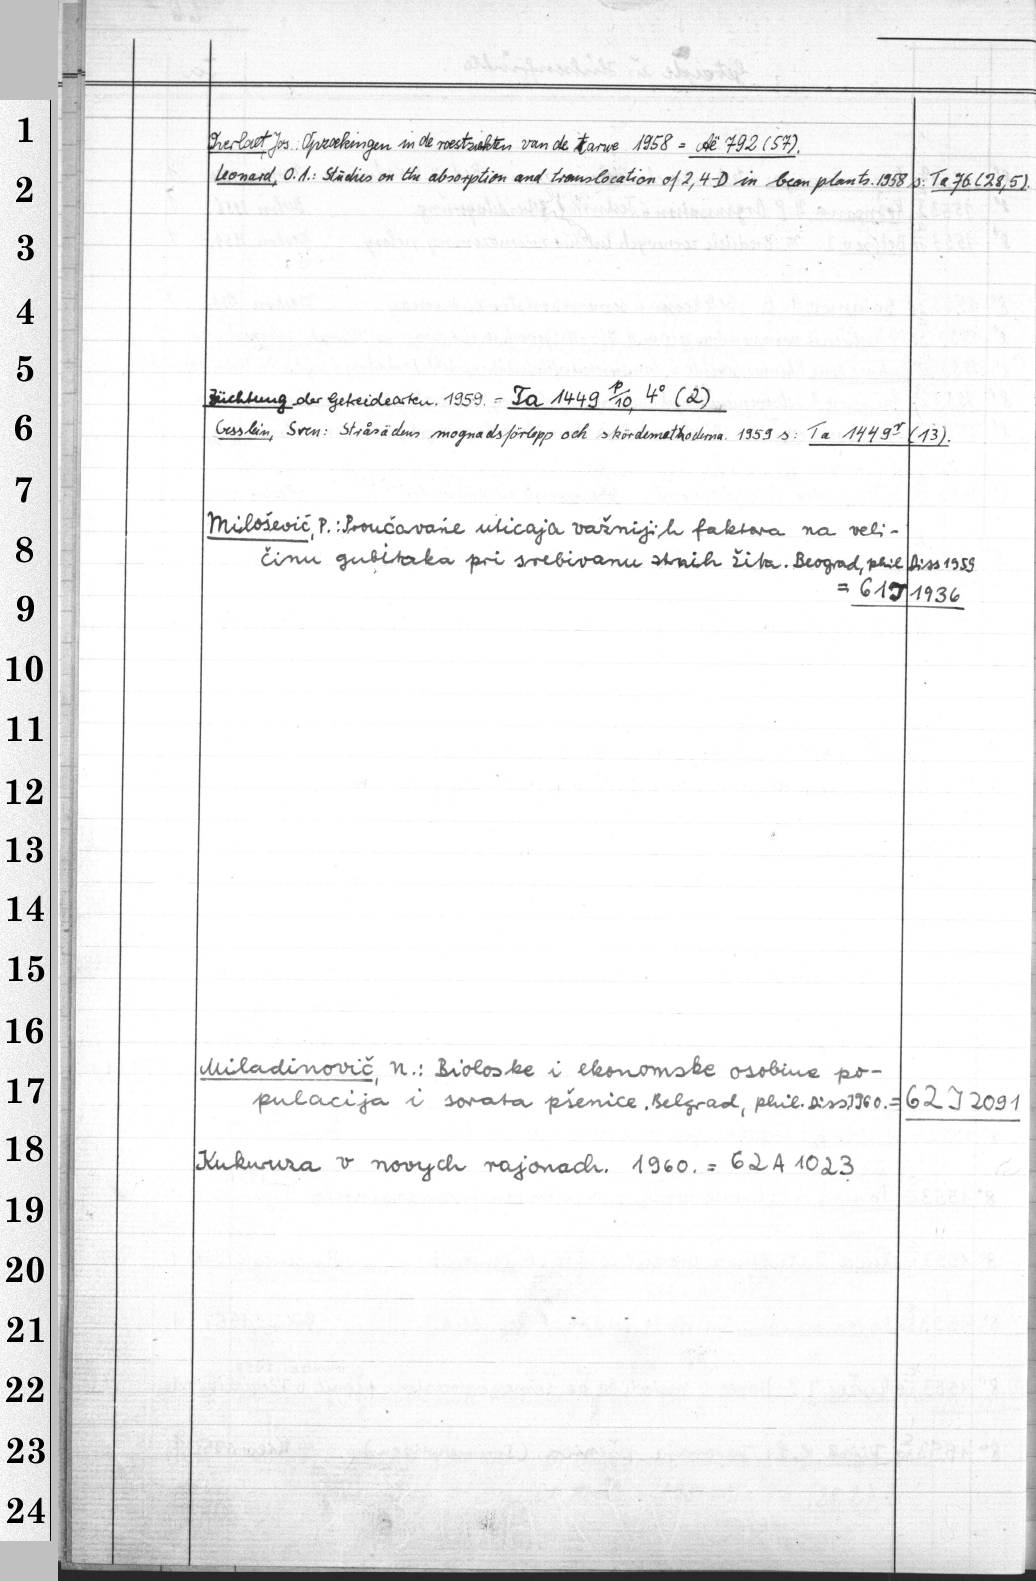 1
2
3
4
5
6
7
8
9
10
11
12
13
14
15
16
17
18
19
20
21
22
23
24
Jos.: Opzoekingen in de roestziekten van de tarwe 1958 = Aë 792 (57).
Leonard, O. A.: Studies on the absorption and translocation of 2,4-D in bean plants. 1958 s: Ta 76 (28,5).
Züchtung der Getreidearten. 1959. = Ta 1449 p/10, 4° (2)
Sven: Stråsädens mognadsförlopp och skördemethoderna. 1959 s: Ta 1449r (13).
Milošević, P.: Proučavańe uticaja važnijih faktora na veli-
činu gubitaka pri srebivanu strnih žita. Beograd, phil Diss 1959
= 61 J 1936
Miladinovič, N.: Bioloske i ekonomske osobine po-
pulacija i sorata pšenice. Belgrad, phil. Diss 1960. = 62 J 2091
Kukuruza v novych rajonach. 1960. = 62 A 1023